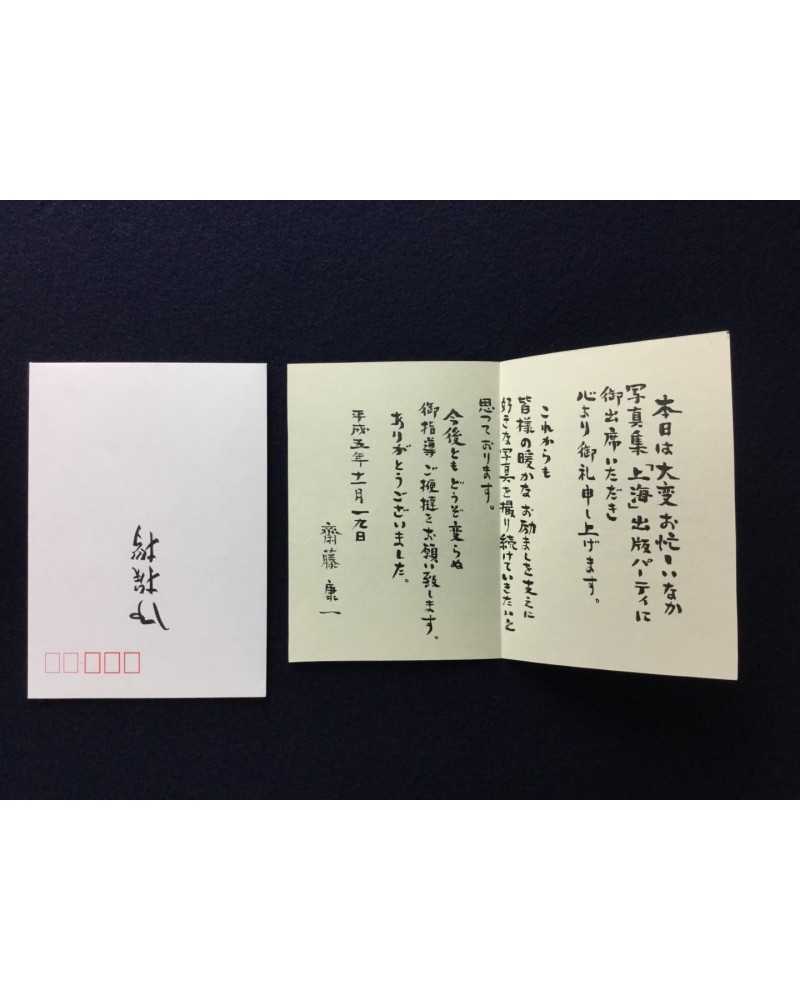 本日は大変お忙しいなか
写真集「上海」出版パーティに
御出席いただき
心より御礼申し上げます。
これからも
皆様の暖かなお励ましを支えに
好きな写真を撮り続けていきたいと
思っております。
今後ともどうぞ変らぬ
御指導ご鞭撻をお願い致します。
ありがとうございました。
平成五年十一月一九日
齋藤康一